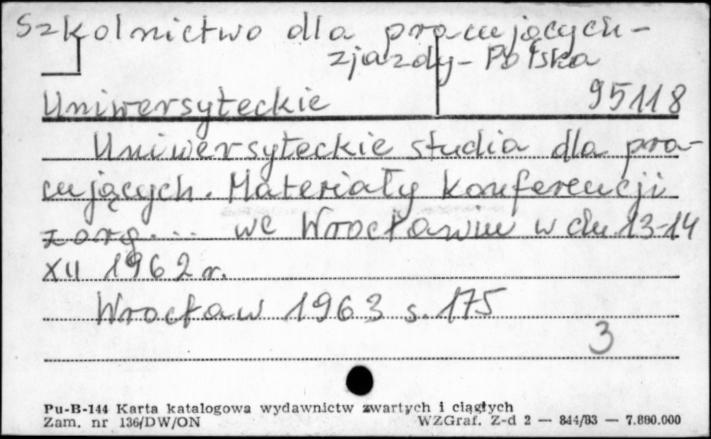 Szkolnictwo dla pracujących -
zjazdy - Polska
Uniwersyteckie 95118
Uniwersyteckie studia dla pra-
cujących. Materiały konferencji
zorg... we Wrocławiu w dn 13-14
XII 1962 r.
Wrocław 1963 s. 175
3
Pu-B-144 Karta katalogowa wydawnictw zwartych i ciągłych
Zam. nr 136/DW/ON WZGraf. Z-d 2 — 844/83 — 7.880.000